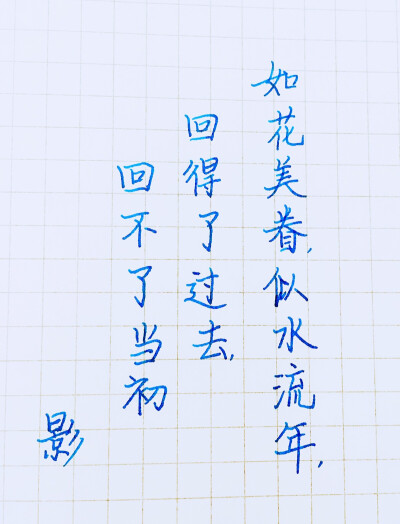 如花美眷,似水流年,
回得了过去,
回不了当初
影